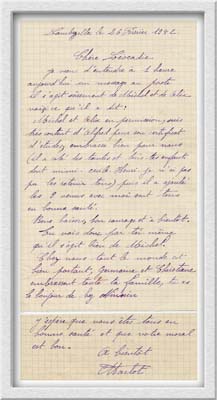 le 26 Février 1942
Chère Léocadie
je viens d'entendre à 1 heure
aujourd'hui un message au poste
il s'agit sûrement de Michel et de
voici ce qu'il a dit :
Michel et en permission, suis
très content d'Alfred pour son certificat
d'études, embrasse bien pour nous
tous les enfants
dont mimi. je n'ai
pas pu les retenir tous) puis il a ajouté
les 2 avec moi sont tous
en bonne santé.
Bons baisers, bon courage et à bientôt.
Tu vois donc par toi même
qu'il s'agit bien de Michel.
Chez nous tout le monde est
bien portant, Germaine et Christiane
embrassent toute la famille, tu es
J'espère que vous êtes tous en
bonne santé et que votre moral
est bon.
A bientôt